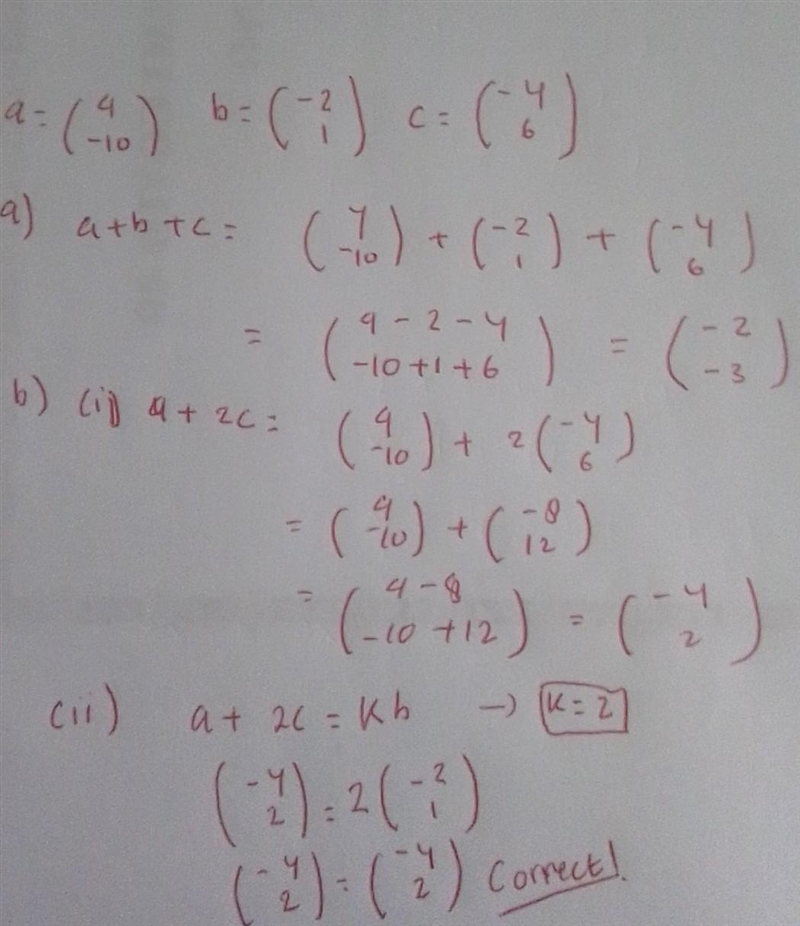 a = (4 -10) b = (-2 1) c = (-4 6)
a) a+b+c = (4 -10) + (-2 1) + (-4 6)
= (4 - 2 - 4 -10+1+6) = (-2 -3)
b) (i) a + 2c = (4 -10) + 2(-4 6)
= (4 -10) + (-8 12)
= (4 - 8 -10 + 12) = (-4 2)
(ii) a + 2c = Kb → K = 2
(-4 2) = 2(-2 1)
(-4 2) = (-4 2) Correct!